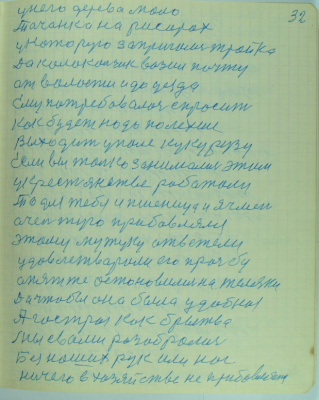 32
у него дерева мало
Тачанка на рисорах
у которую запрягали тройка
Да колокольчик возил почту
от волости и до уезда
Ему потребовалос спросит
как будет надо полехше
Выходит у поле кукурузу
Если вы только занимались этим
у крестянстве работали
То для тебя и пшеница и ячмен
очен туго прибовлял
этому мужику ответели
удовлетварили его прозбу
опят же остоновилис на телеги
Да чтобы она была удобная
А востроя как брытва
Мы свами разобралис
Без наших рук или ног
ничего в хозяйстве не прибовлят